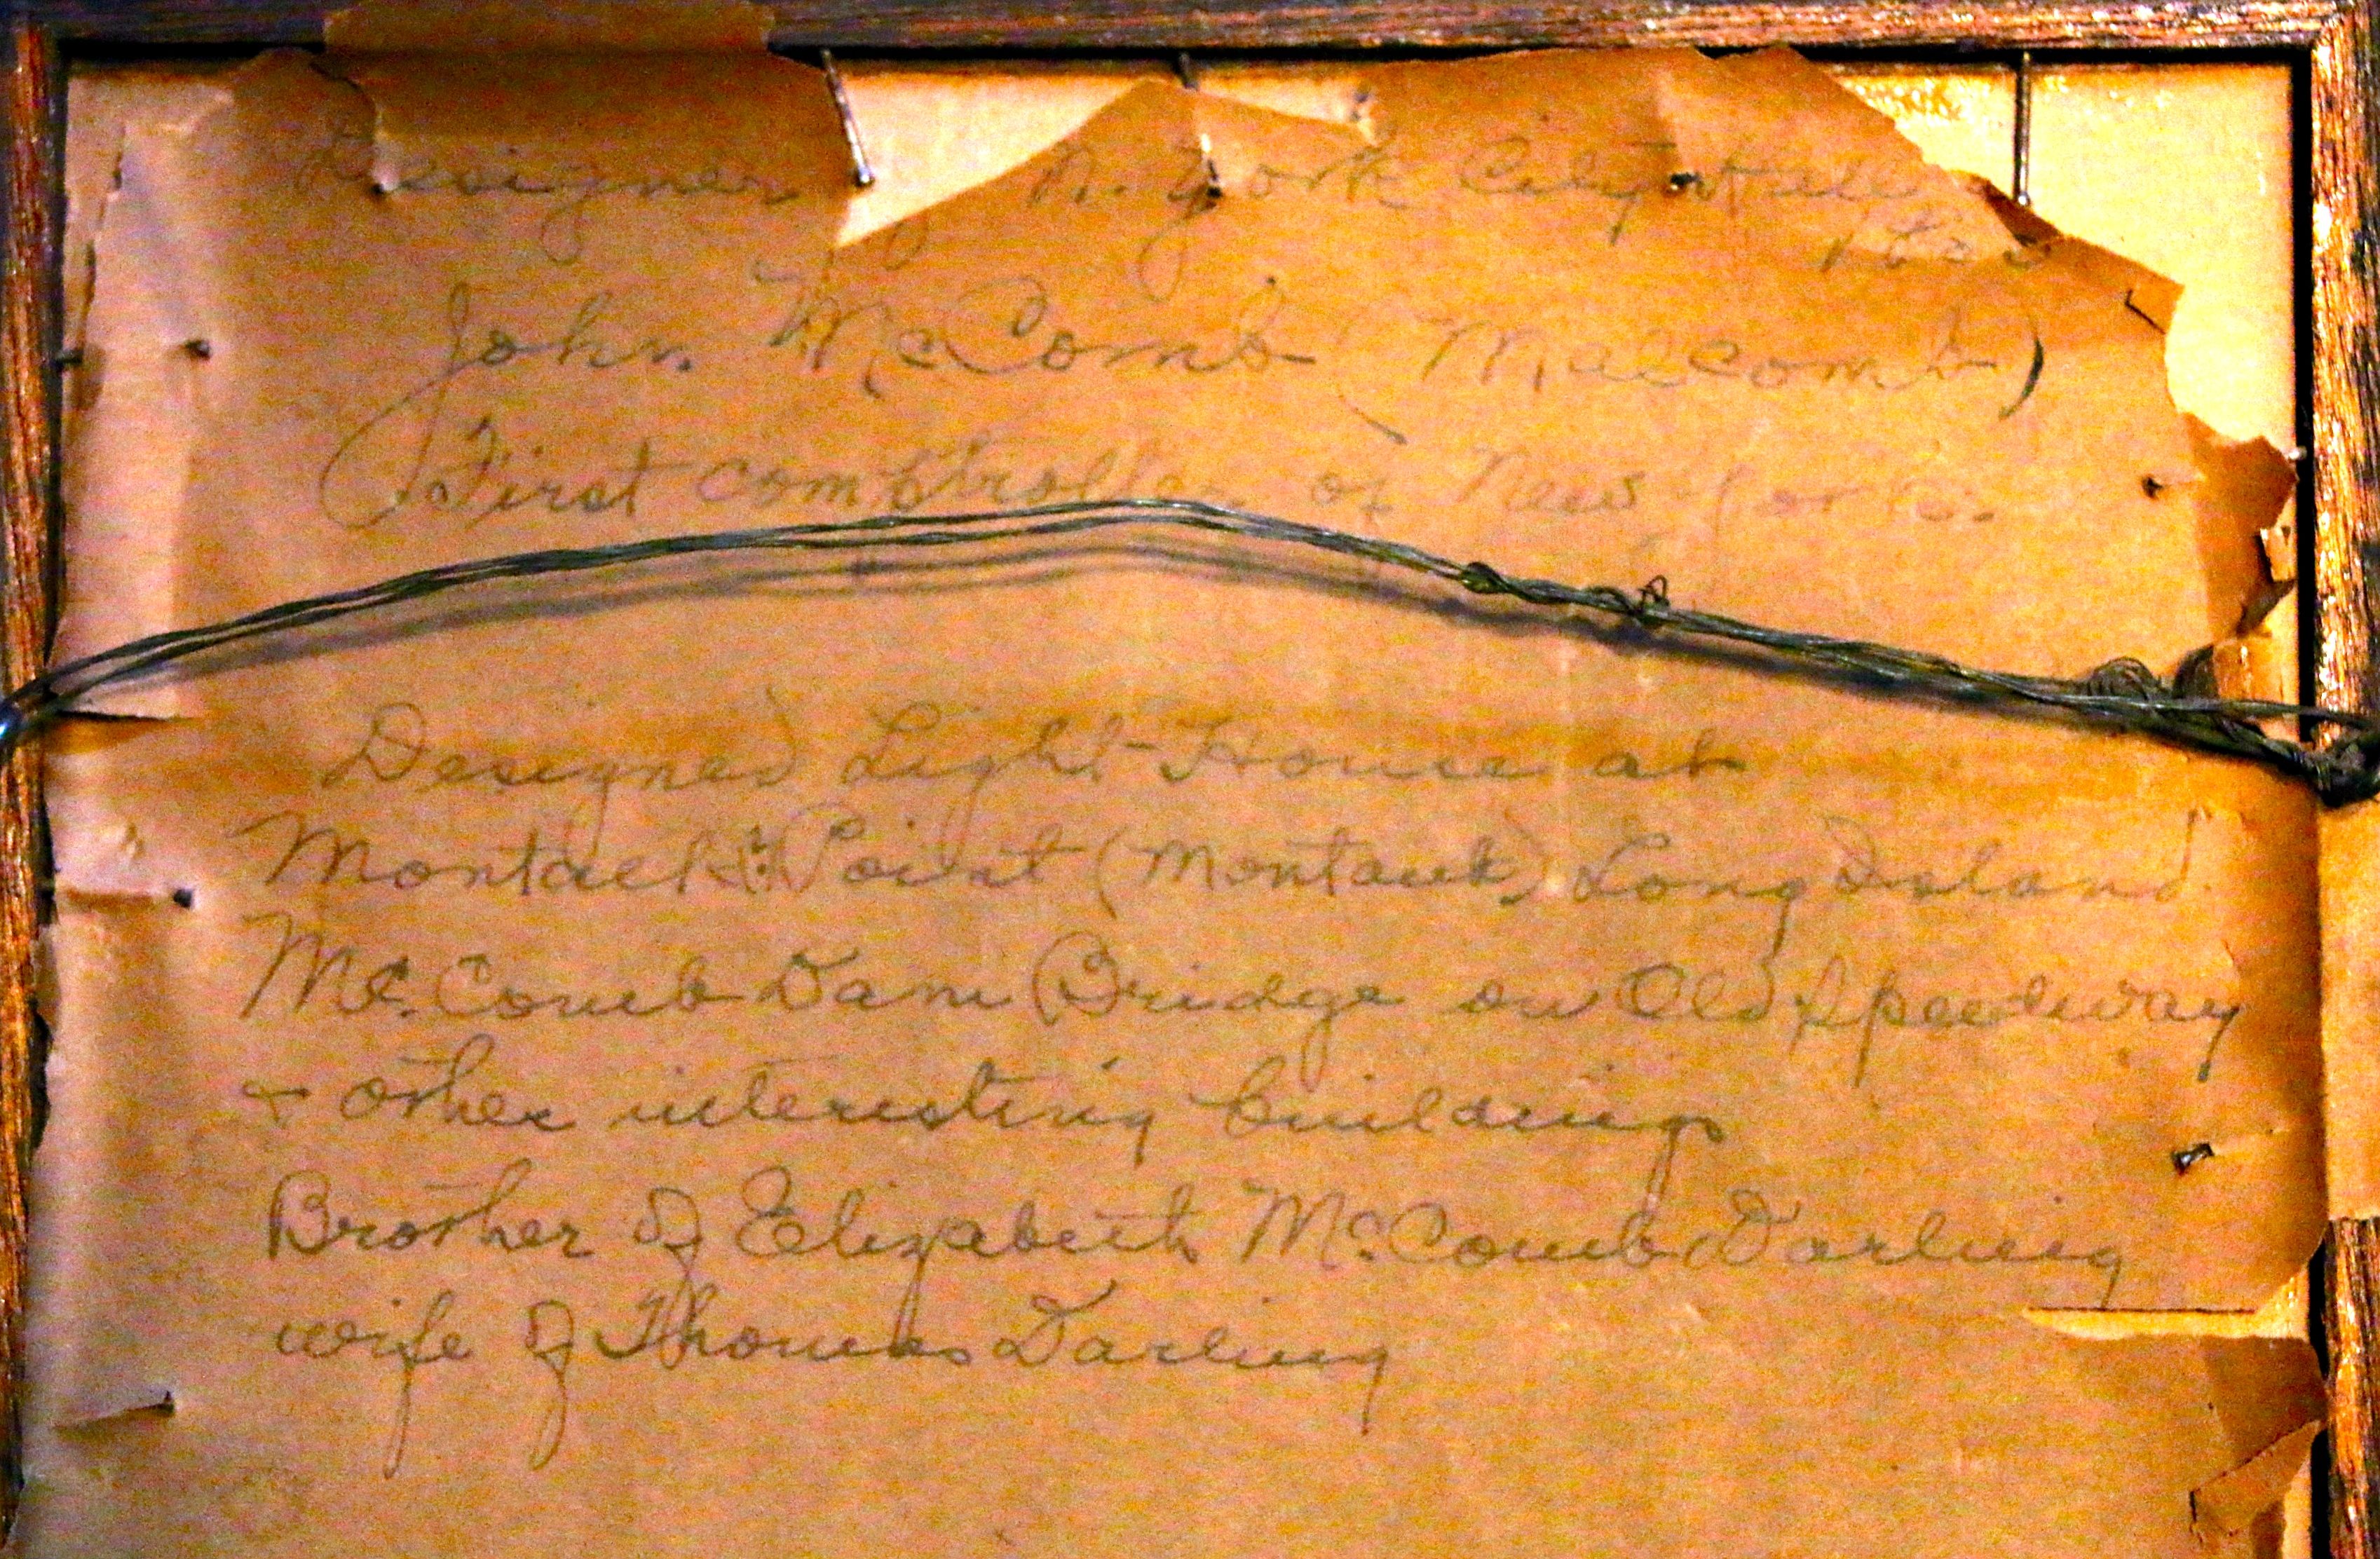 Designer of N. York City Hall
John McComb (Malcomb)
First comptroller of New York.
Designed Light-House at
Point (Montauk) Long Island
McComb Dam Bridge on Old Speedway
& other interesting buildings
Brother of Elizabeth McComb Darling
wife of Thomas Darling